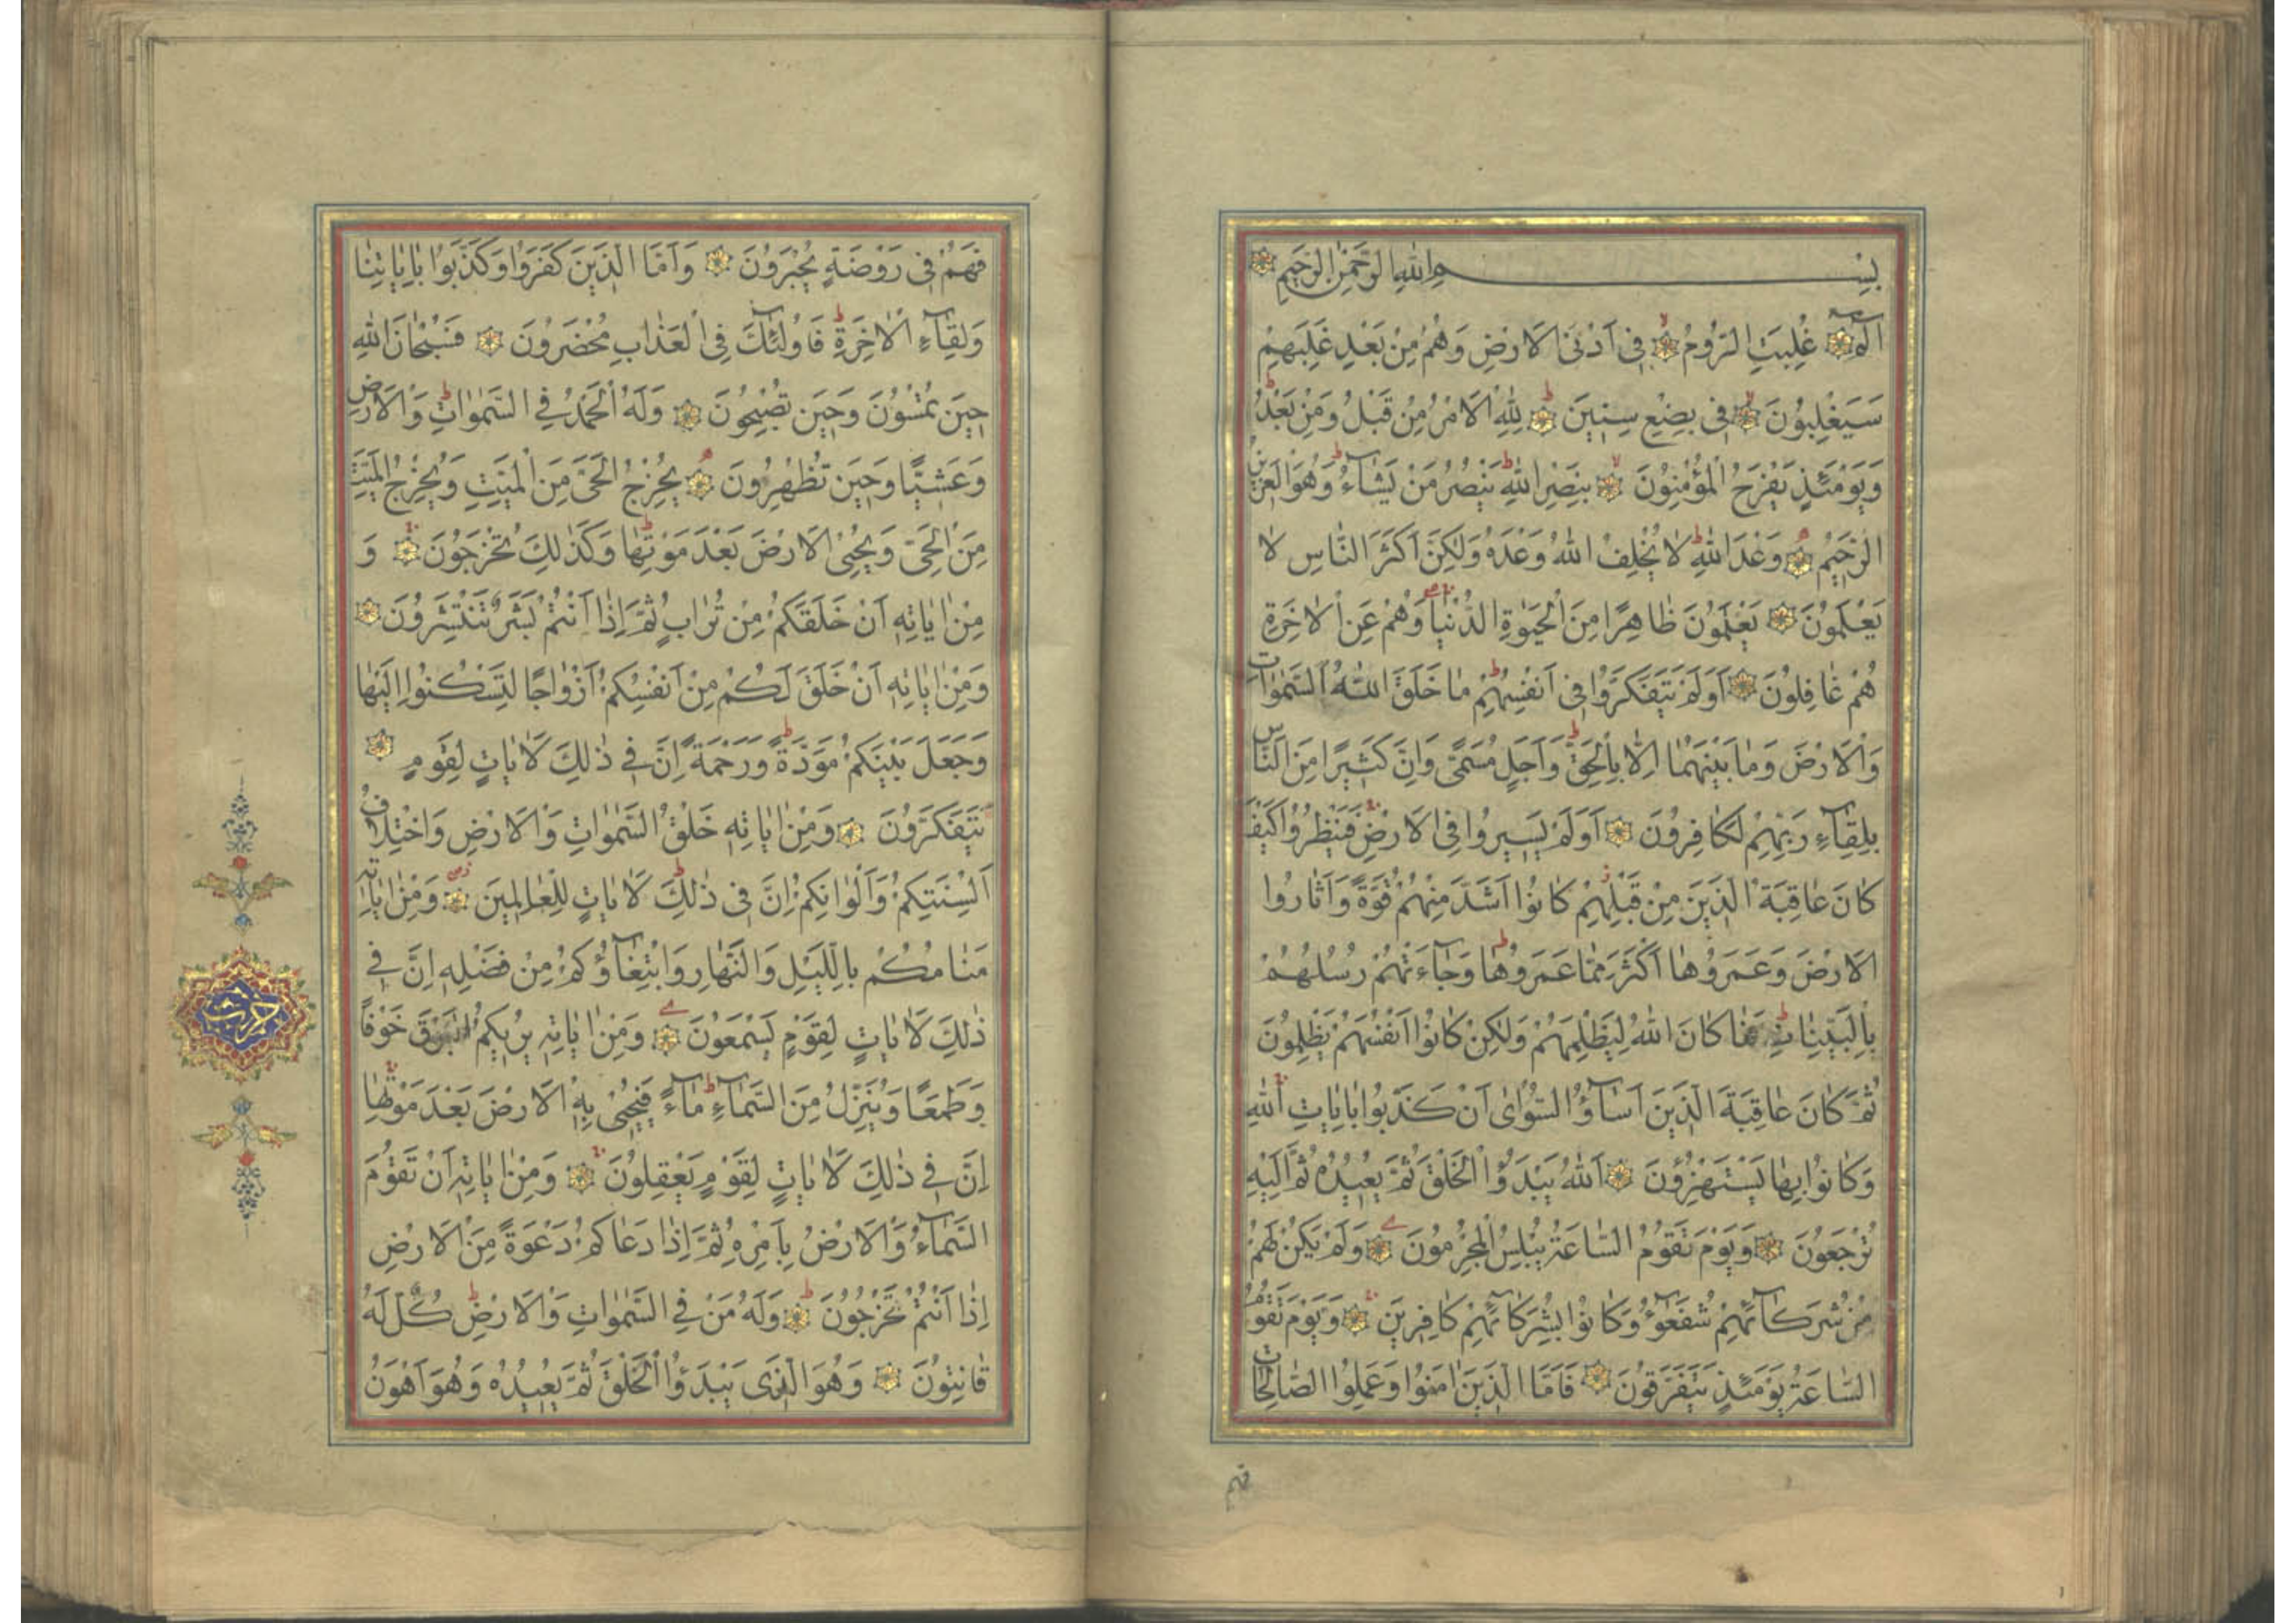 بِسْمِ اللهِ الرَّحْمٰنِ الرَّحِيمِ
الٓمٓ غُلِبَتِ الرُّومُ فِى اَدْنَى الْاَرْضِ وَهُمْ مِنْ بَعْدِ غَلَبِهِمْ
سَيَغْلِبُونَ فِى بِضْعِ سِنِينَ لِلّٰهِ الْاَمْرُ مِنْ قَبْلُ وَمِنْ بَعْدُ
وَيَوْمَئِذٍ يَفْرَحُ الْمُؤْمِنُونَ بِنَصْرِ اللهِ يَنْصُرُ مَنْ يَشَآءُ وَهُوَ الْعَزِيزُ
الرَّحِيمُ وَعْدَ اللهِ لَا يُخْلِفُ اللهُ وَعْدَهُ وَلٰكِنَّ اَكْثَرَ النَّاسِ لَا
يَعْلَمُونَ يَعْلَمُونَ ظَاهِرًا مِنَ الْحَيٰوةِ الدُّنْيَا وَهُمْ عَنِ الْاٰخِرَةِ
هُمْ غَافِلُونَ اَوَلَمْ يَتَفَكَّرُوا فِى اَنْفُسِهِمْ مَا خَلَقَ اللهُ السَّمٰوَاتِ
وَالْاَرْضَ وَمَا بَيْنَهُمَا اِلَّا بِالْحَقِّ وَاَجَلٍ مُسَمًّى وَاِنَّ كَثِيرًا مِنَ النَّاسِ
بِلِقَآءِ رَبِّهِمْ لَكَافِرُونَ اَوَلَمْ يَسِيرُوا فِى الْاَرْضِ فَيَنْظُرُوا كَيْفَ
كَانَ عَاقِبَةُ الَّذِينَ مِنْ قَبْلِهِمْ كَانُوا اَشَدَّ مِنْهُمْ قُوَّةً وَاَثَارُوا
الْاَرْضَ وَعَمَرُوهَا اَكْثَرَ مِمَّا عَمَرُوهَا وَجَآءَتْهُمْ رُسُلُهُمْ
بِالْبَيِّنَاتِ فَمَا كَانَ اللهُ لِيَظْلِمَهُمْ وَلٰكِنْ كَانُوا اَنْفُسَهُمْ يَظْلِمُونَ
ثُمَّ كَانَ عَاقِبَةَ الَّذِينَ اَسَآؤُا السُّوٓاٰى اَنْ كَذَّبُوا بِاٰيَاتِ اللهِ
وَكَانُوا بِهَا يَسْتَهْزِؤُنَ اَللهُ يَبْدَؤُا الْخَلْقَ ثُمَّ يُعِيدُهُ ثُمَّ اِلَيْهِ
تُرْجَعُونَ وَيَوْمَ تَقُومُ السَّاعَةُ يُبْلِسُ الْمُجْرِمُونَ وَلَمْ يَكُنْ لَهُمْ
مِنْ شُرَكَآئِهِمْ شُفَعٰٓؤُا وَكَانُوا بِشُرَكَآئِهِمْ كَافِرِينَ وَيَوْمَ تَقُومُ
السَّاعَةُ يَوْمَئِذٍ يَتَفَرَّقُونَ فَاَمَّا الَّذِينَ اٰمَنُوا وَعَمِلُوا الصَّالِحَاتِ
فهم
فَهُمْ فِى رَوْضَةٍ يُحْبَرُونَ وَاَمَّا الَّذِينَ كَفَرُوا وَكَذَّبُوا بِاٰيَاتِنَا
وَلِقَآءِ الْاٰخِرَةِ فَاُولٰٓئِكَ فِى الْعَذَابِ مُحْضَرُونَ فَسُبْحَانَ اللهِ
حِينَ تُمْسُونَ وَحِينَ تُصْبِحُونَ وَلَهُ الْحَمْدُ فِى السَّمٰوَاتِ وَالْاَرْضِ
وَعَشِيًّا وَحِينَ تُظْهِرُونَ يُخْرِجُ الْحَىَّ مِنَ الْمَيِّتِ وَيُخْرِجُ الْمَيِّتَ
مِنَ الْحَىِّ وَيُحْيِى الْاَرْضَ بَعْدَ مَوْتِهَا وَكَذٰلِكَ تُخْرَجُونَ وَ
مِنْ اٰيَاتِهِ اَنْ خَلَقَكُمْ مِنْ تُرَابٍ ثُمَّ اِذَا اَنْتُمْ بَشَرٌ تَنْتَشِرُونَ
وَمِنْ اٰيَاتِهِ اَنْ خَلَقَ لَكُمْ مِنْ اَنْفُسِكُمْ اَزْوَاجًا لِتَسْكُنُوا اِلَيْهَا
وَجَعَلَ بَيْنَكُمْ مَوَدَّةً وَرَحْمَةً اِنَّ فِى ذٰلِكَ لَاٰيَاتٍ لِقَوْمٍ
يَتَفَكَّرُونَ وَمِنْ اٰيَاتِهِ خَلْقُ السَّمٰوَاتِ وَالْاَرْضِ وَاخْتِلَافُ
اَلْسِنَتِكُمْ وَاَلْوَانِكُمْ اِنَّ فِى ذٰلِكَ لَاٰيَاتٍ لِلْعَالِمِينَ وَمِنْ اٰيَاتِهِ
مَنَامُكُمْ بِالَّيْلِ وَالنَّهَارِ وَابْتِغَآؤُكُمْ مِنْ فَضْلِهِ اِنَّ فِى
ذٰلِكَ لَاٰيَاتٍ لِقَوْمٍ يَسْمَعُونَ وَمِنْ اٰيَاتِهِ يُرِيكُمُ الْبَرْقَ خَوْفًا
وَطَمَعًا وَيُنَزِّلُ مِنَ السَّمَآءِ مَآءً فَيُحْيِى بِهِ الْاَرْضَ بَعْدَ مَوْتِهَا
اِنَّ فِى ذٰلِكَ لَاٰيَاتٍ لِقَوْمٍ يَعْقِلُونَ وَمِنْ اٰيَاتِهِ اَنْ تَقُومَ
السَّمَآءُ وَالْاَرْضُ بِاَمْرِهِ ثُمَّ اِذَا دَعَاكُمْ دَعْوَةً مِنَ الْاَرْضِ
اِذَا اَنْتُمْ تَخْرُجُونَ وَلَهُ مَنْ فِى السَّمٰوَاتِ وَالْاَرْضِ كُلٌّ لَهُ
قَانِتُونَ وَهُوَ الَّذِى يَبْدَؤُا الْخَلْقَ ثُمَّ يُعِيدُهُ وَهُوَ اَهْوَنُ
حزب